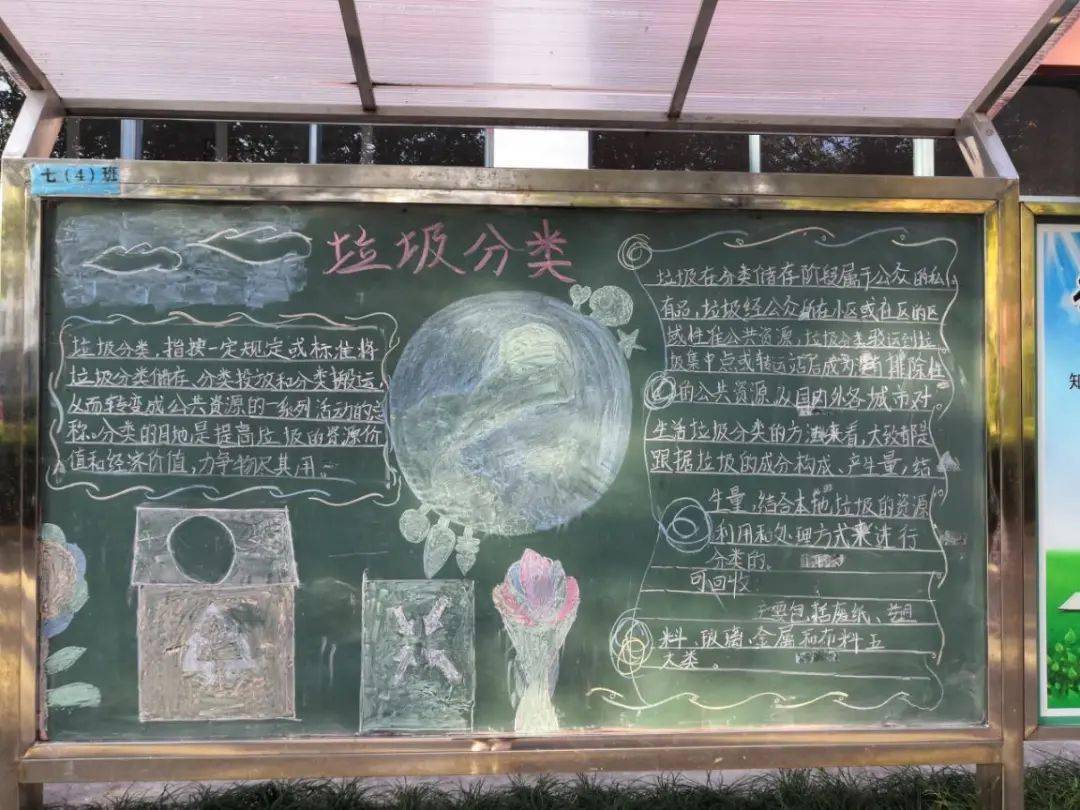 七(4)班
垃圾分类
垃圾分类,指按一定规定或标准将
垃圾分类储存、分类投放和分类搬运,
从而转变成公共资源的一系列活动的总
称。分类的目地是提高垃圾的资源价
值和经济价值,力争物尽其用。
垃圾在分类储存阶段属于公众的私
有品,垃圾经公众 在小区或在区的区
域性准公共资源,垃圾分类 到垃
圾集中点或转运站后成 排除性
的公共资源 从国内外各城市对
生活垃圾分类的方法来看,大致都是
跟据垃圾的成分构成、产生量,结
生量,结合本地垃圾的资源
利用和处理方式来进行
分类的.
可回收
主要包括废纸、塑
料、玻璃、金属和布料五
大类。
知